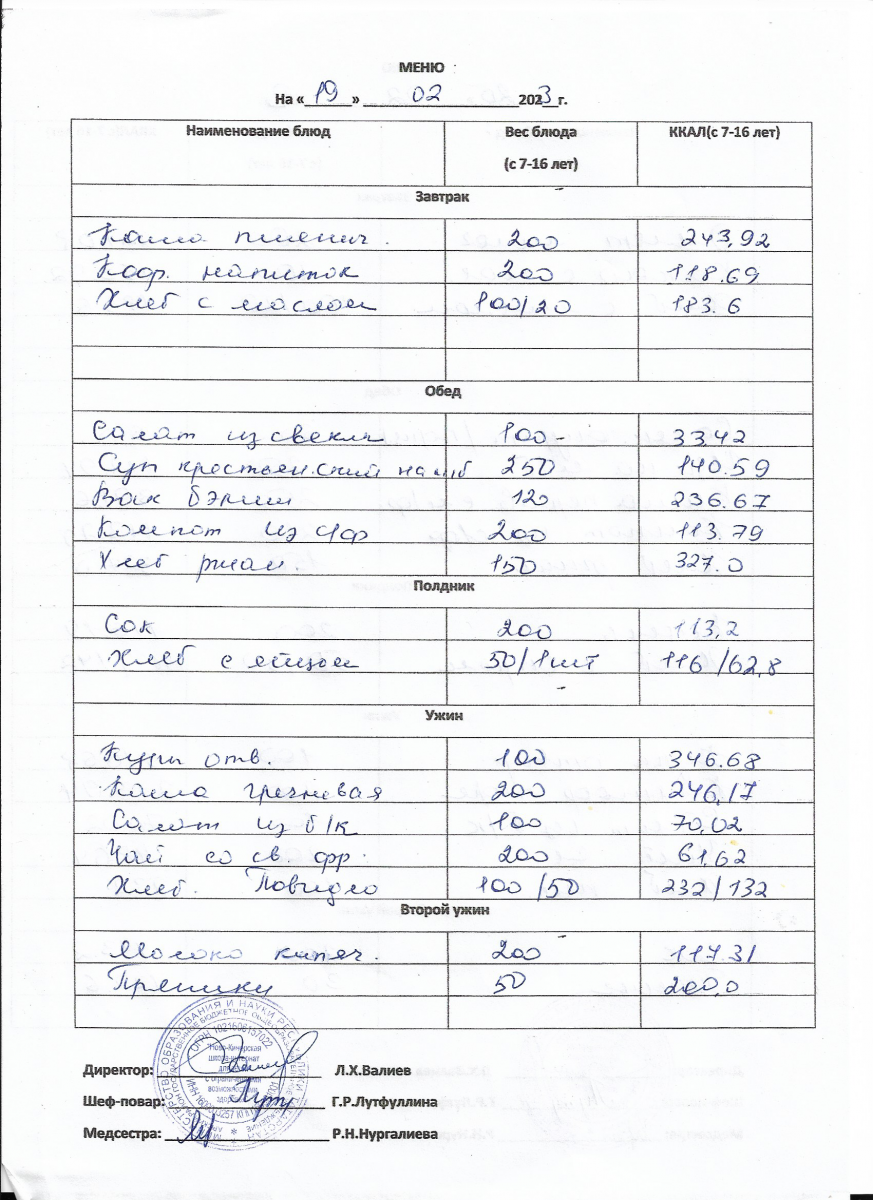 МЕНЮ
На «19» 02 2023г.
Наименование блюд Вес блюда (с 7-16 лет) ККАЛ(с 7-16 лет)
Завтрак
Каша пшенич. 200 243,92
Коф. напиток 200 118.69
Хлеб с маслом 100/20 183.6
Обед
Салат из свеклы 100 33.42
Суп крестьянский на м/б 250 140.59
Вак бэлиш 120 236.67
Компот из с/ф 200 113.79
Хлеб ржан. 150 327.0
Полдник
Сок 200 113,2
Хлеб с яйцом 50/1шт 116/62,8
Ужин
Куры отв. 100 346.68
Каша гречневая 200 246,17
Салат из б/к 100 70,02
Чай со св. фр. 200 61,62
Хлеб. Повидло 100/50 232/132
Второй ужин
Молоко кипяч. 200 117.31
Пряники 50 200,0
Директор: Л.Х.Валиев
Шеф-повар: Г.Р.Лутфуллина
Медсестра: Р.Н.Нургалиева